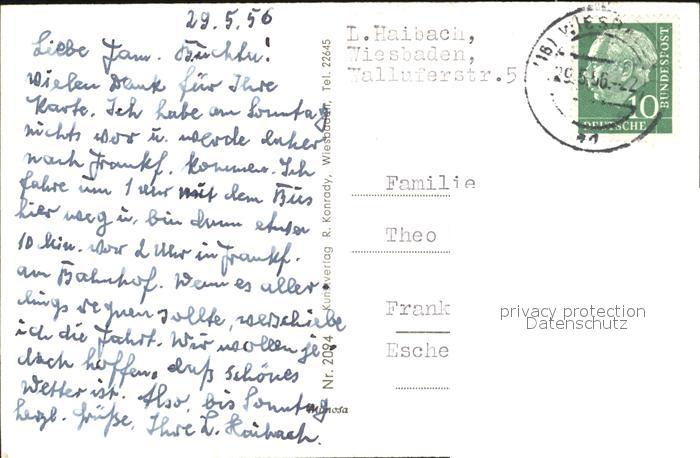 29.5.56
Liebe Fam. Büchtu!
vielen Dank für Ihre
Karte. Ich habe am Sonntag
nichts vor u. werde daher
nach Frankf. kommen. Ich
fahre um 1 Uhr mit dem Bus
hier weg u. bin dann etwa
10 Min. vor 2 Uhr in Frankf.
am Bahnhof. Wenn es aller-
dings regnen sollte, verschiebe
ich die Fahrt. Wir wollen je-
doch hoffen, daß schönes
Wetter ist. Also, bis Sonntag
herzl. Grüße, Ihre L. Haibach.
Nr. 2094 Kunstverlag R. Konrady, Wiesbaden, Tel. 22645
Monosa
L.Haibach,
Wiesbaden,
Walluferstr.5
(16) WIESB
29.5.56.-22
10
DEUTSCHE
BUNDESPOST
Familie
Theo
Frank
Esche
privacy protection
Datenschutz